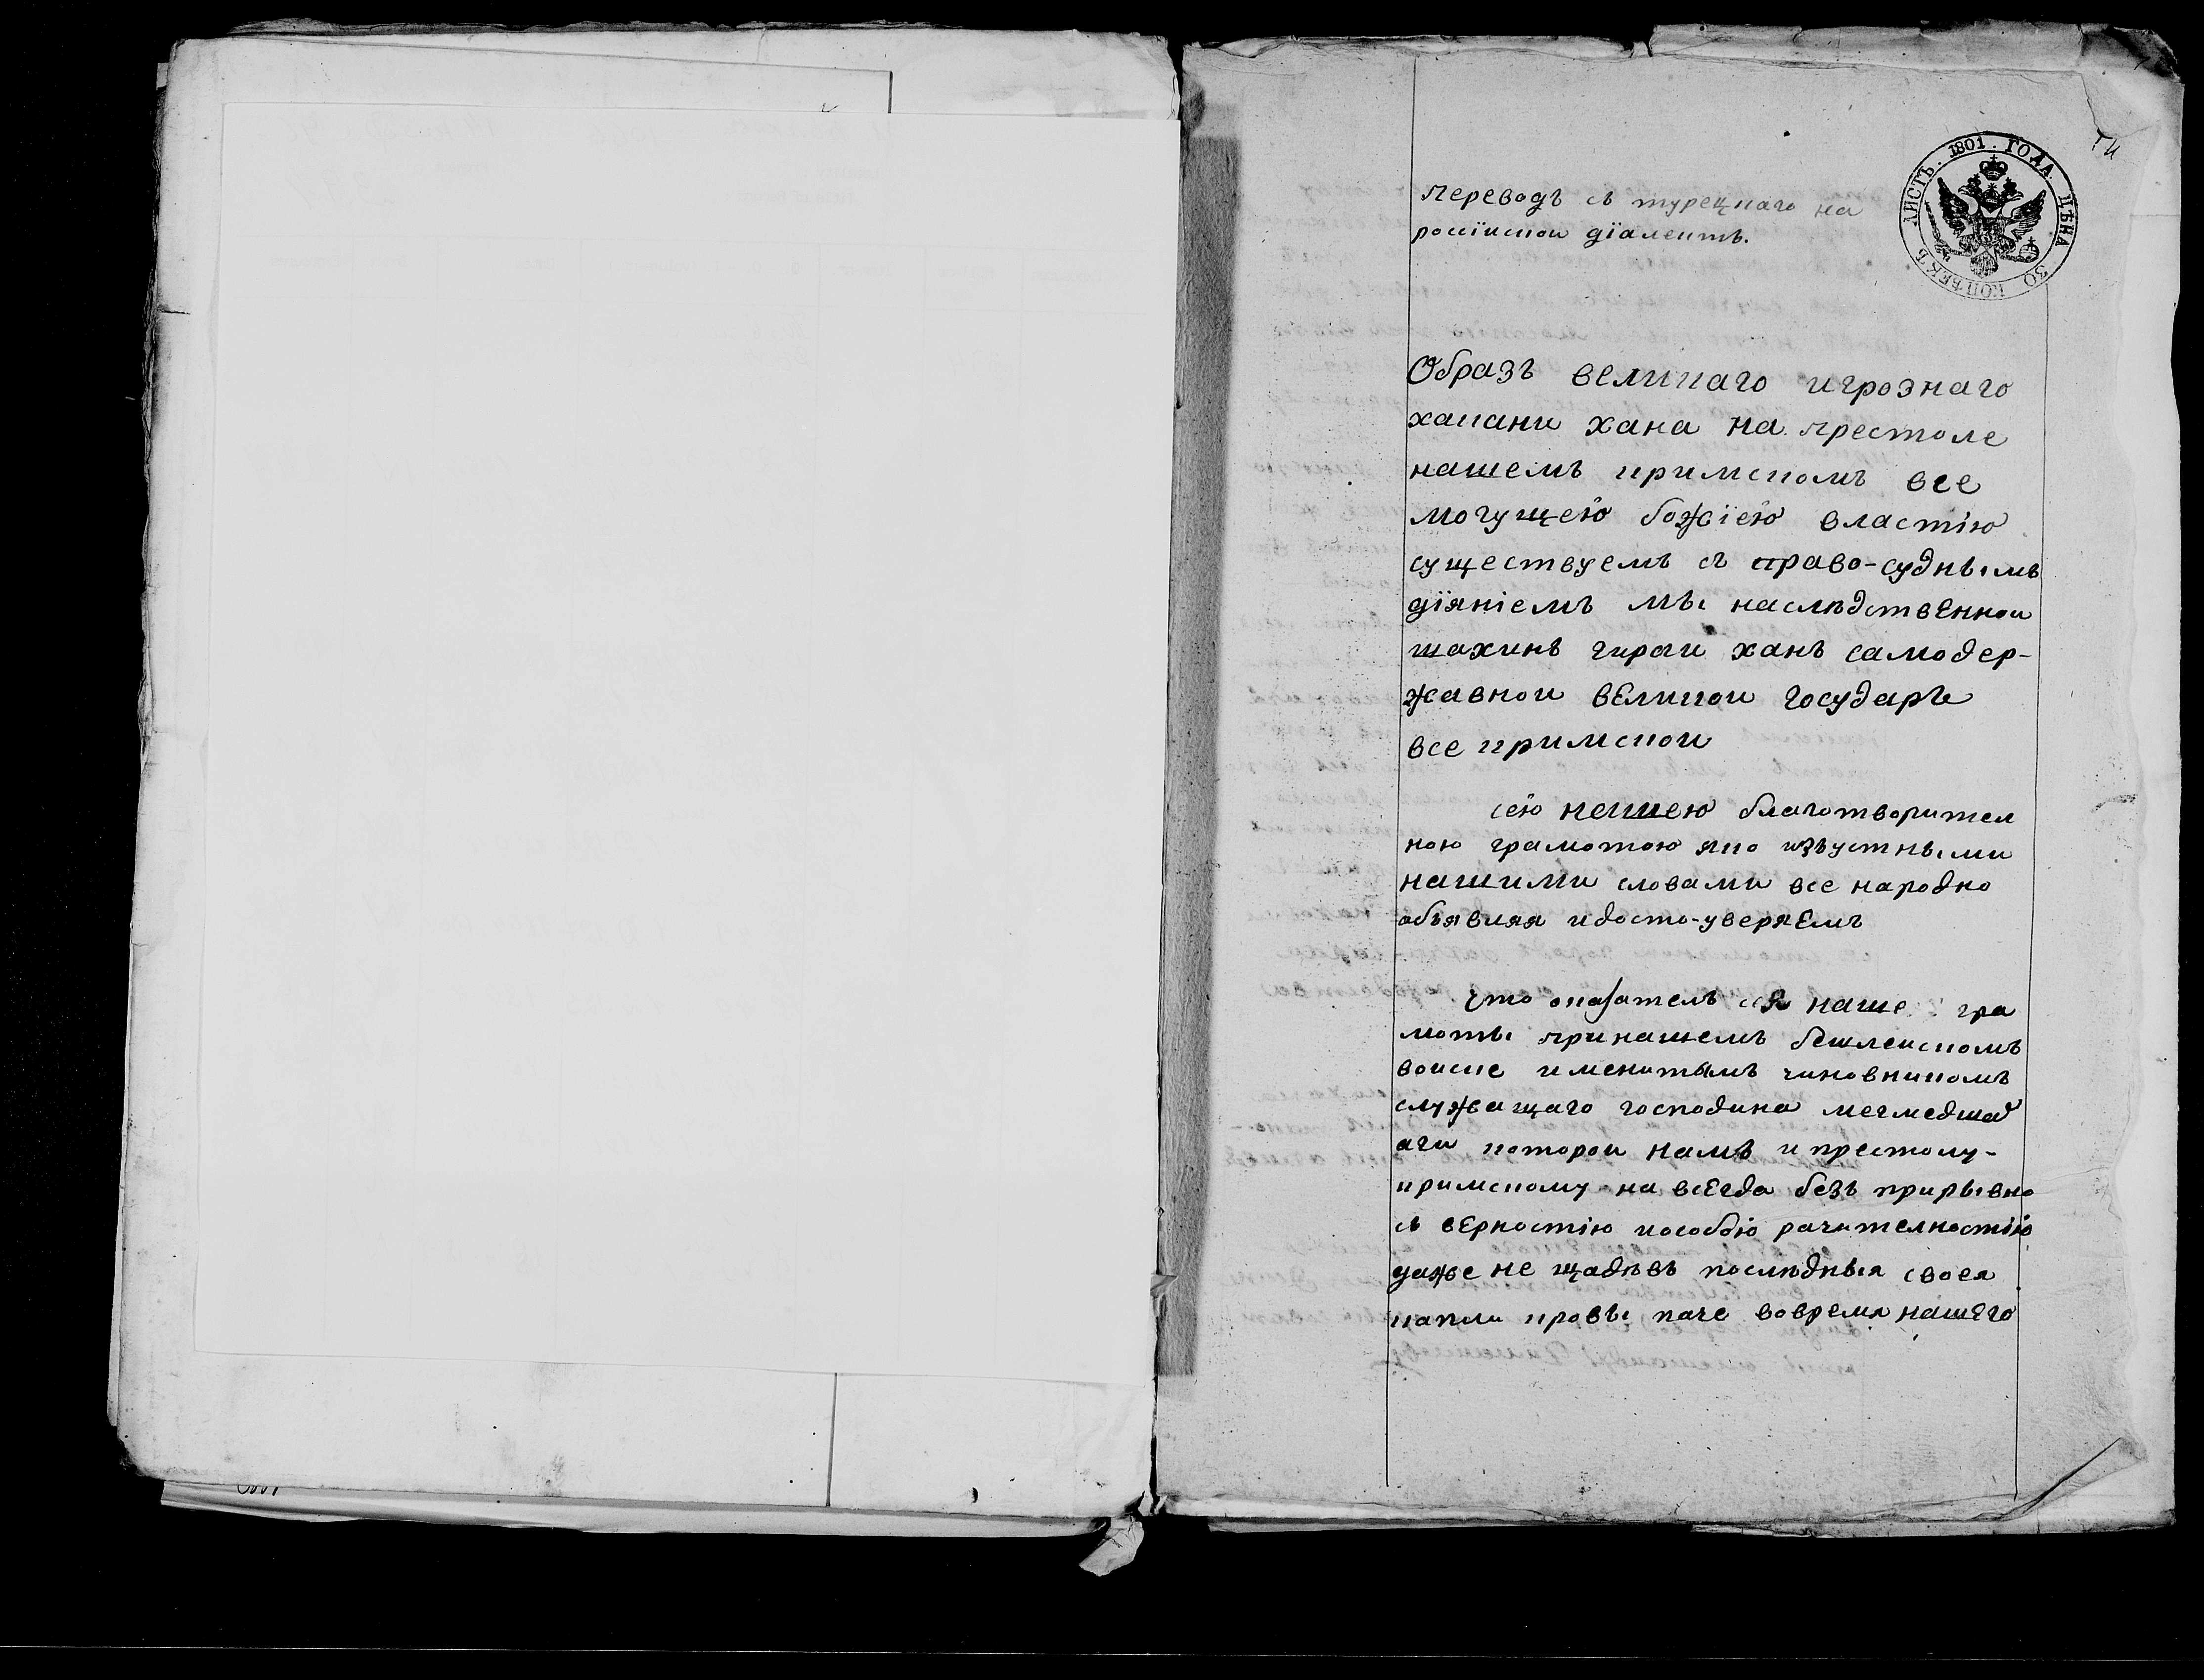 ЛИСТЪ. 1801. ГОДА. ЦѢНА 30 КОПѢЕКЪ
Переводъ съ турецкаго на
россїискои дїалектъ.
Образъ великаго игрознаго
хакани хана на престоле
нашемъ крымскомъ все
могущею божїею властїю
существуемъ съ право-суднымъ
дїянїемъ мы наслѣдственнои
шахинъ гираи ханъ самодер-
жавнои великои государь
все крымскои
сею нашею благотворител
ною грамотою яко изъустными
нашими словами все народно
объявляя идосто-уверяемъ
что оказатель сея наше гра
моты принашемъ бешлеискомъ
воиске именитымъ чиновникомъ
служащаго господина мегмедша
аги которои намъ и престолу-
крымскому на всегда безъ прирывно
съ верностїю иособою рачителностїю
даже не щадѣвъ послѣдныя своея
капли кровы паче вовремя нашего